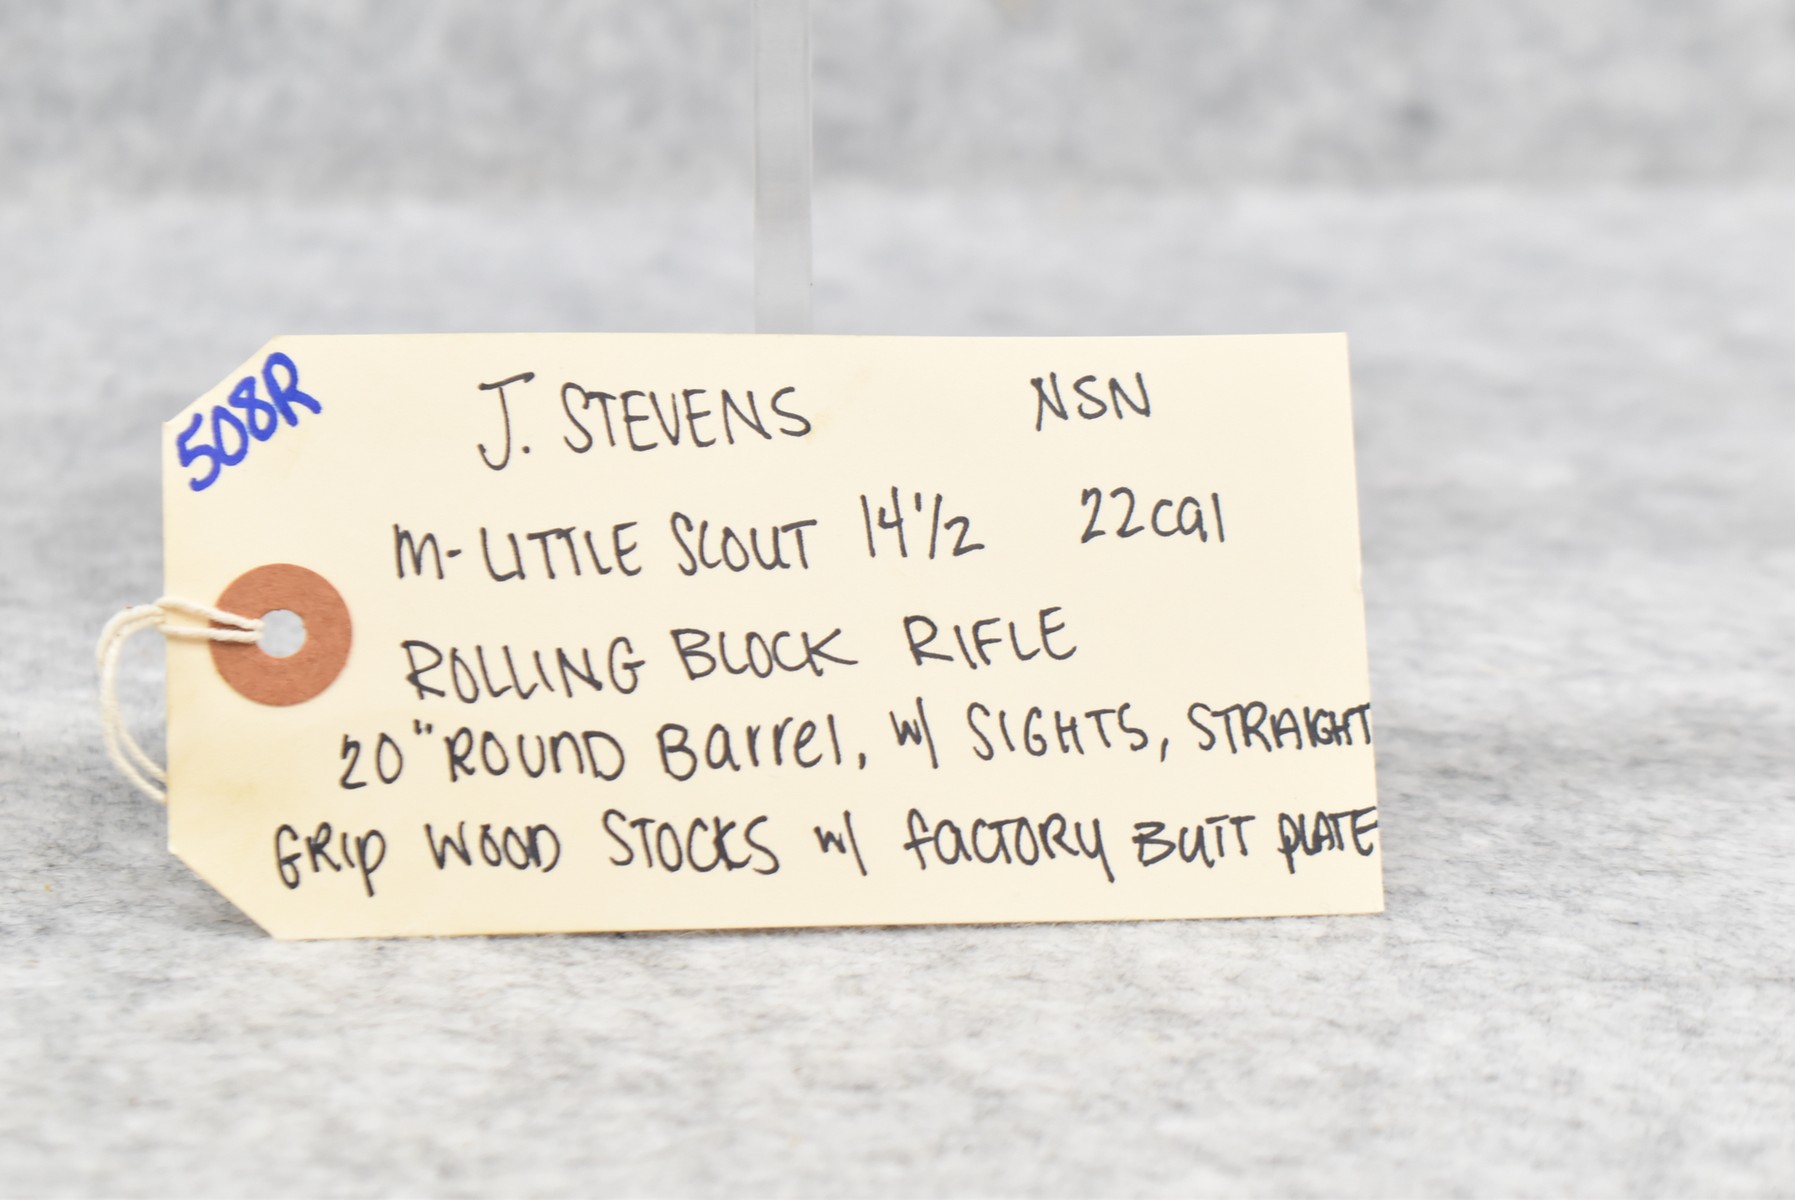 508R
J. STEVENS NSN
M-LITTLE SCOUT 14 1/2 22cal
ROLLING BLOCK RIFLE
20" ROUND Barrel, w/ SIGHTS, STRAIGHT
GRIP WOOD STOCKS w/ FACTORY BUTT PLATE